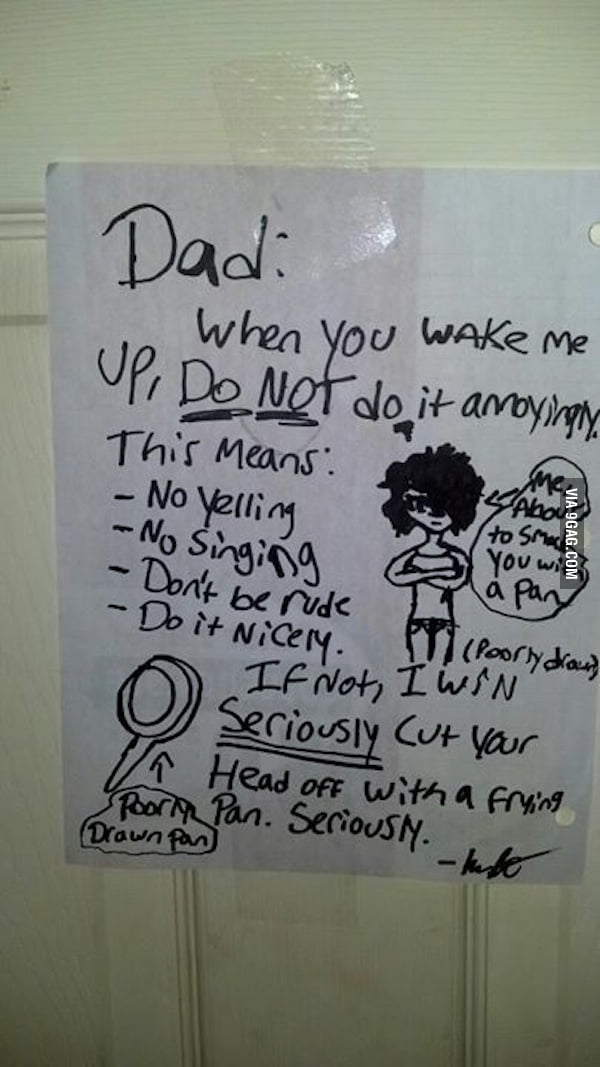 Dad:
When you wake me
up, Do NOT do it annoyingly.
This Means:
- No Yelling
- No Singing
- Don't be rude
- Do it Nicely.
Me
About
to
You
a Pan
(Poorly drawn)
If Not, I WiN
Seriously Cut your
Head off with a frying
Pan. Seriously.
Poorly
Drawn Pan
VIA 9GAG.COM